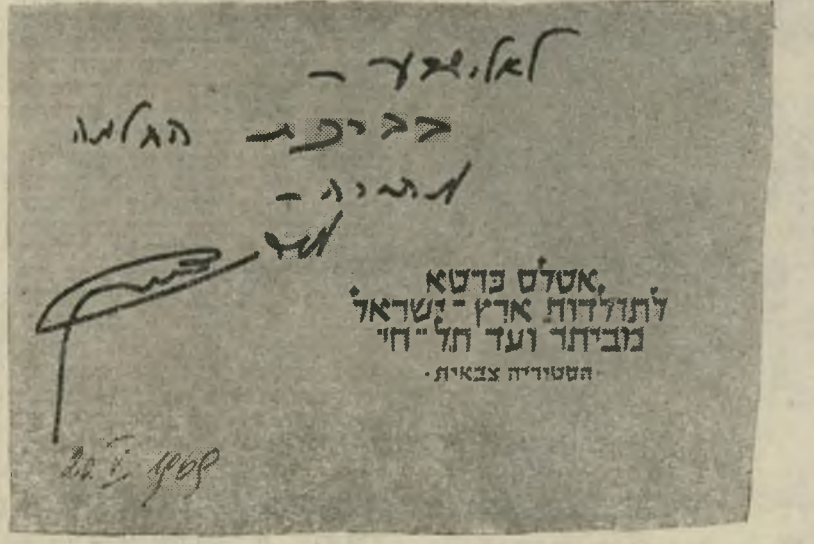 לאלישבע -
בברכת החלמה
מהרה -
אטלס כרטא
לתולדות ארץ-ישראל
מביתר ועד תל-חי
הסטוריה צבאית.
1969